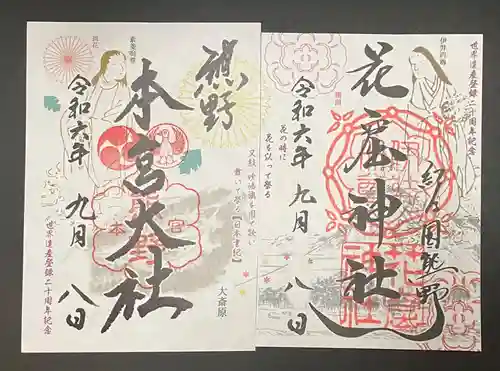 世界遺産登録二十周年記念
伊弉冉尊
花窟神社
紀の国熊野
令和六年 九月 八日
花の時に
花を以って祭る
熊野
本宮大社
令和六年 九月 八日
又鼓・吹・幡旗を用て歌い
舞いて祭る【日本書紀】
大斎原
素戔嗚尊
世界遺産登録二十周年記念
本宮